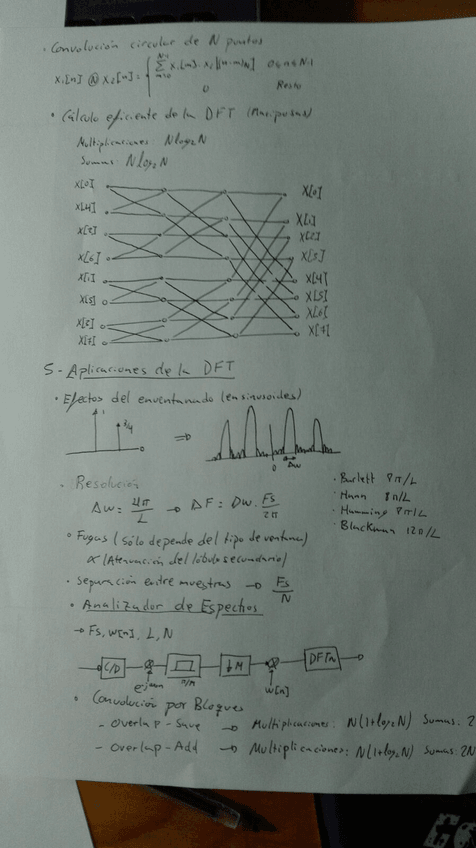 · Convolución circular de N puntos
x₁[n] Ⓝ x₂[n] = { Σ x₁[m]·x₂[(n-m)N] 0≤n≤N-1
N-1
m=0
0 Resto
· Cálculo eficiente de la DFT (Mariposas)
Multiplicaciones: N log₂ N
Sumas: N log₂ N
x[0] X[0]
x[4] X[1]
x[2] X[2]
x[6] X[3]
x[1] X[4]
x[5] X[5]
x[3] X[6]
x[7] X[7]
5 - Aplicaciones de la DFT
· Efectos del enventanado (en sinusoides)
1
3/4
⇒
0 Δw
- Resolución
Δw = 4π/L → ΔF = Dw · Fs/2π
· Bartlett 8π/L
· Hann 8π/L
· Hamming 8π/L
· Blackman 12π/L
· Fugas (Sólo depende del tipo de ventana)
∝ (Atenuación del lóbulo secundario)
· Separación entre muestras → Fs/N
· Analizador de Espectros
→ Fs, w[n], L, N
C/D ⊗ π/M ↓M ⊗ DFT_N
w[n]
· Convolución por Bloques
- Overlap-Save → Multiplicaciones: N(1+log₂N) Sumas: 2
- Overlap-Add → Multiplicaciones: N(1+log₂N) Sumas: 2N